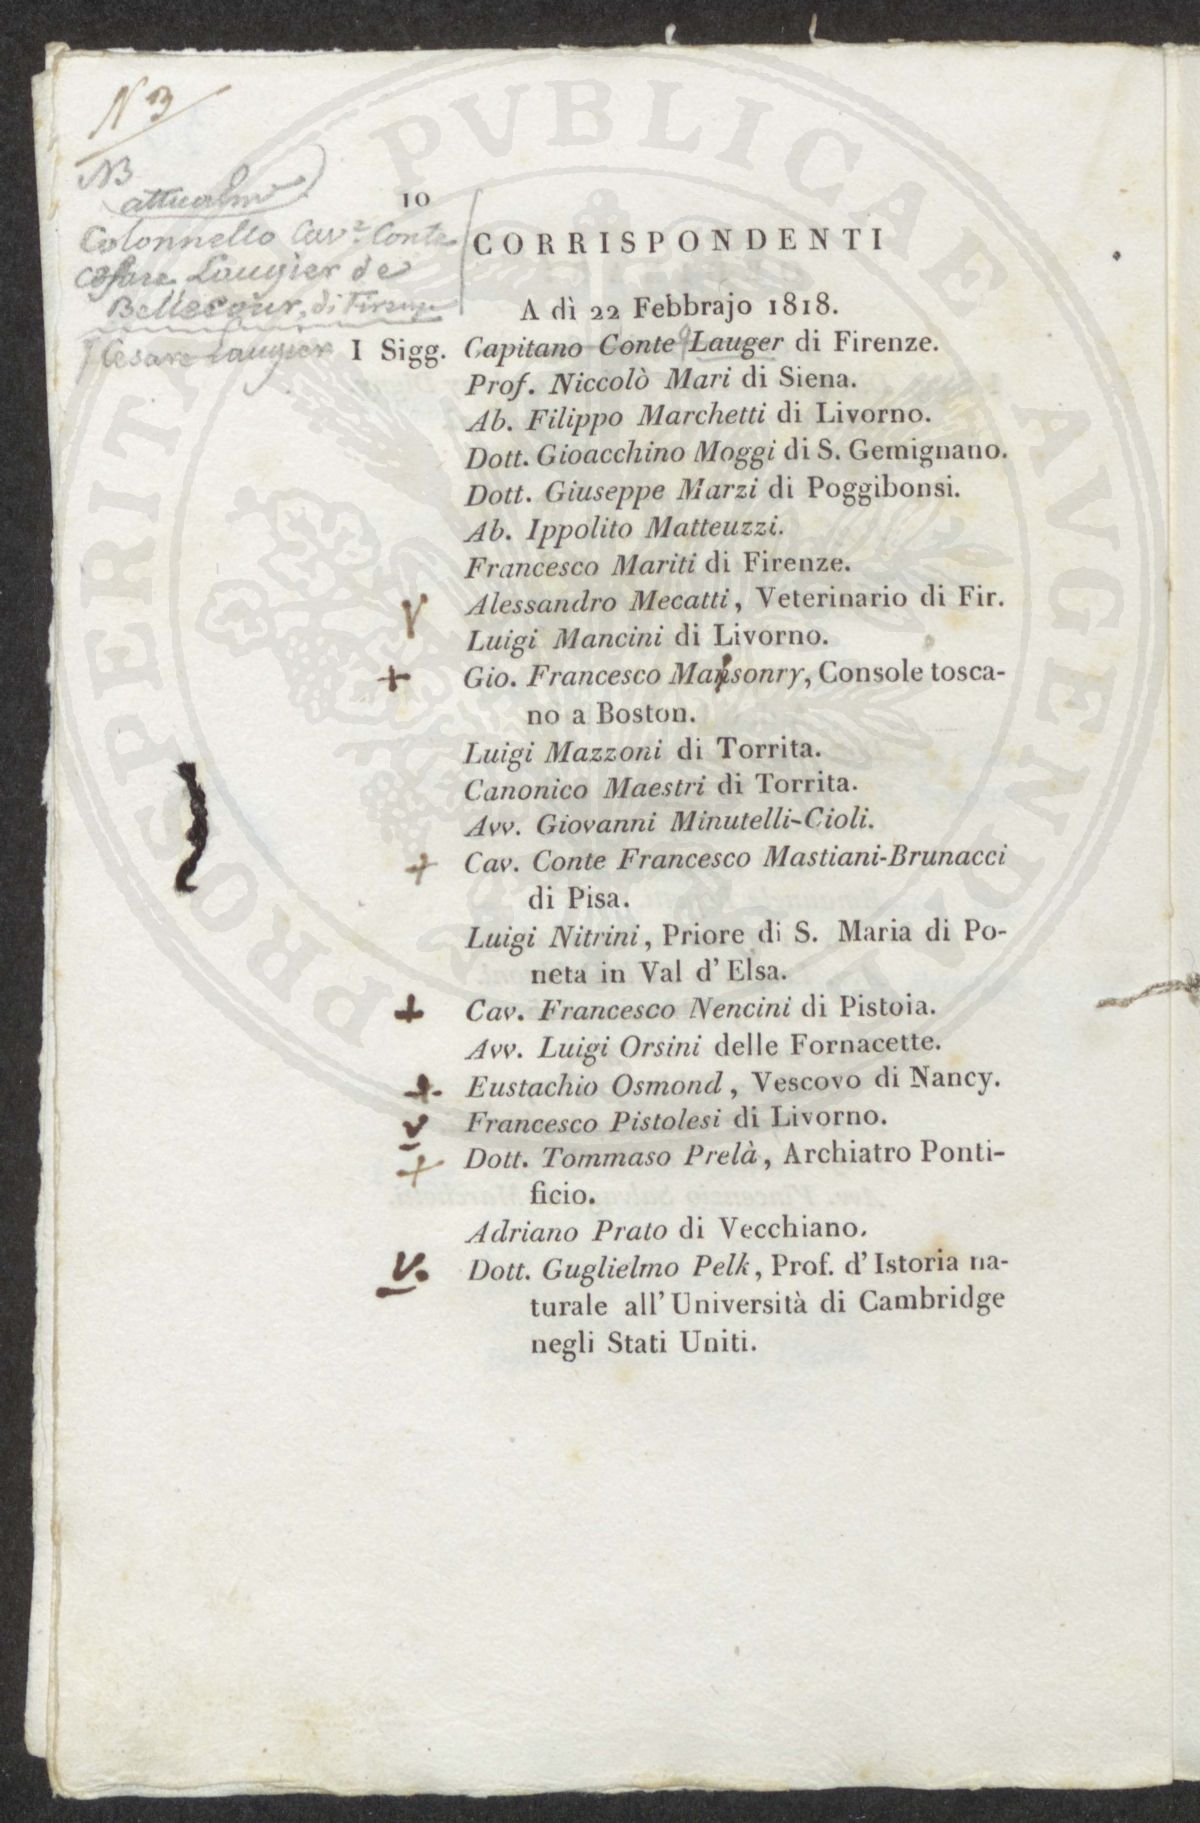 N 3
NB
attualme
10
Colonnello Cav.e Conte
Cesare Laugier de
Bellecour, di Firenze
Cesare Laugier
CORRISPONDENTI
A dì 22 Febbrajo 1818.
I Sigg. Capitano Conte Lauger di Firenze.
Prof. Niccolò Mari di Siena.
Ab. Filippo Marchetti di Livorno.
Dott. Gioacchino Moggi di S. Gemignano.
Dott. Giuseppe Marzi di Poggibonsi.
Ab. Ippolito Matteuzzi.
Francesco Mariti di Firenze.
V Alessandro Mecatti, Veterinario di Fir.
Luigi Mancini di Livorno.
+ Gio. Francesco Mansonry, Console tosca-
no a Boston.
Luigi Mazzoni di Torrita.
Canonico Maestri di Torrita.
Avv. Giovanni Minutelli-Cioli.
+ Cav. Conte Francesco Mastiani-Brunacci
di Pisa.
Luigi Nitrini, Priore di S. Maria di Po-
neta in Val d' Elsa.
+ Cav. Francesco Nencini di Pistoia.
Avv. Luigi Orsini delle Fornacette.
+ Eustachio Osmond, Vescovo di Nancy.
v Francesco Pistolesi di Livorno.
+ Dott. Tommaso Prelà, Archiatro Ponti-
ficio.
Adriano Prato di Vecchiano.
V. Dott. Guglielmo Pelk, Prof. d' Istoria na-
turale all' Università di Cambridge
negli Stati Uniti.
PROSPERITATI PVBLICAE AVGENDAE